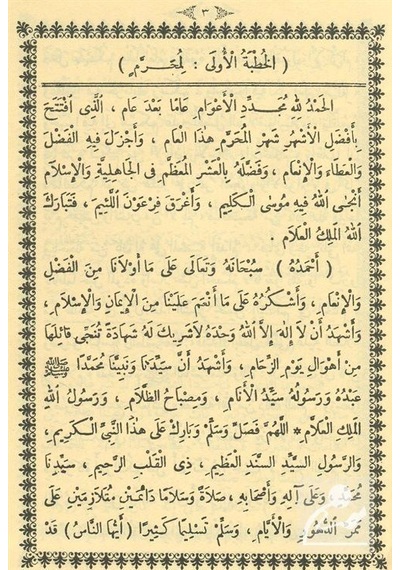 — ٣ —
( الْخُطْبَةُ الْأُولَى : لِمُحَرَّمٍ )
الْحَمْدُ لِلّٰهِ مُجَدِّدِ الْأَعْوَامِ عَامًا بَعْدَ عَامٍ ، الَّذِى افْتَتَحَ
بِأَفْضَلِ الْأَشْهُرِ شَهْرِ الْمُحَرَّمِ هٰذَا الْعَامَ ، وَأَجْزَلَ فِيهِ الْفَضْلَ
وَالْعَطَاءَ وَالْإِنْعَامَ ، وَفَضَّلَهُ بِالْعَشْرِ الْمُعَظَّمِ فِى الْجَاهِلِيَّةِ وَالْإِسْلَامِ
أَنْجَى اللهُ فِيهِ مُوسَى الْكَلِيمَ ، وَأَغْرَقَ فِرْعَوْنَ اللَّئِيمَ ، فَتَبَارَكَ
اللهُ الْمَلِكُ الْعَلَّامُ .
( أَحْمَدُهُ ) سُبْحَانَهُ وَتَعَالَى عَلَى مَا أَوْلَانَا مِنَ الْفَضْلِ
وَالْإِنْعَامِ ، وَأَشْكُرُهُ عَلَى مَا أَنْعَمَ عَلَيْنَا مِنَ الْإِيمَانِ وَالْإِسْلَامِ ،
وَأَشْهَدُ أَنْ لَا إِلٰهَ إِلَّا اللهُ وَحْدَهُ لَا شَرِيكَ لَهُ شَهَادَةً تُنَجِّى قَائِلَهَا
مِنْ أَهْوَالِ يَوْمِ الزِّحَامِ ، وَأَشْهَدُ أَنَّ سَيِّدَنَا وَنَبِيَّنَا مُحَمَّدًا ﷺ
عَبْدُهُ وَرَسُولُهُ سَيِّدُ الْأَنَامِ ، وَمِصْبَاحُ الظَّلَامِ ، وَرَسُولُ اللهِ
الْمَلِكِ الْعَلَّامِ * اللّٰهُمَّ فَصَلِّ وَسَلِّمْ وَبَارِكْ عَلَى هٰذَا النَّبِىِّ الْكَرِيمِ ،
وَالرَّسُولِ السَّيِّدِ السَّنَدِ الْعَظِيمِ ، ذِى الْقَلْبِ الرَّحِيمِ ، سَيِّدِنَا
مُحَمَّدٍ ، وَعَلَى آلِهِ وَأَصْحَابِهِ ، صَلَاةً وَسَلَامًا دَائِمَيْنِ مُتَلَازِمَيْنِ عَلَى
مَمَرِّ الدُّهُورِ وَالْأَيَّامِ ، وَسَلِّمْ تَسْلِيمًا كَثِيرًا ( أَيُّهَا النَّاسُ ) قَدْ